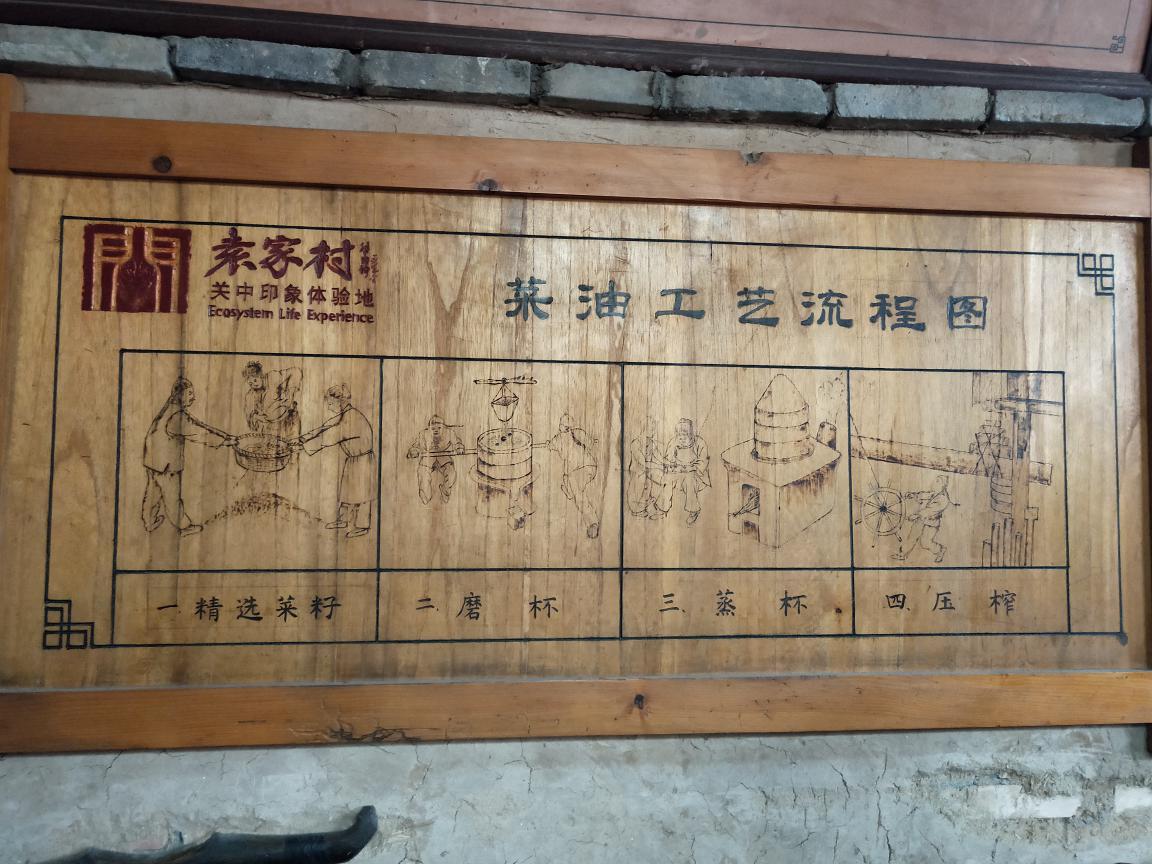 袁家村
关中印象体验地
Ecosystem Life Experience
菜油工艺流程图
一.精选菜籽
二.磨 杯
三.蒸 杯
四.压 榨